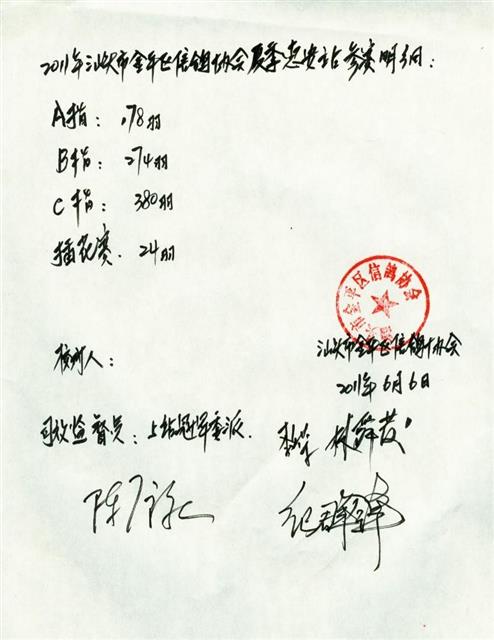 2011年汕头市金平区信鸽协会夏季惠安站参赛明细：
A指： 78羽
B指： 274羽
C指： 380羽
插花赛. 24羽
汕头市金平区信鸽协会
核对人：
汕头市金平区信鸽协会
2011年6月6日
司放监督员：上站冠军委派.